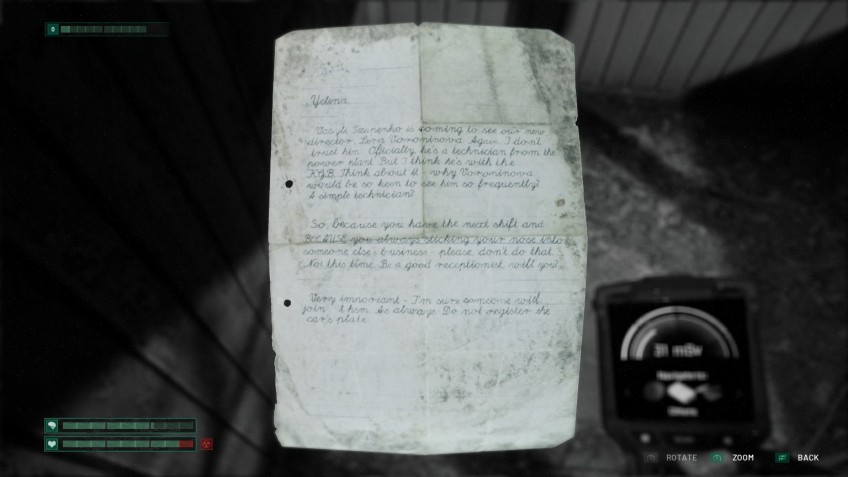 Yelena
Vasyli Izanenko is coming to see our new
director, Lera Voroninova. Again. I don't
trust him. Officially he's a technician from the
power plant. But I think he's with the
KGB. Think about it - why Voroninova
would be so keen to see him so frequently?
A simple technician?
So, because you have the next shift and
BECAUSE you always sticking your nose into
someone else's business - please don't do that.
Not this time. Be a good receptionist, will you?
Very important - I'm sure someone will
join them. As always. Do not register the
car's plate.
31 mSv
ROTATE
ZOOM
BACK